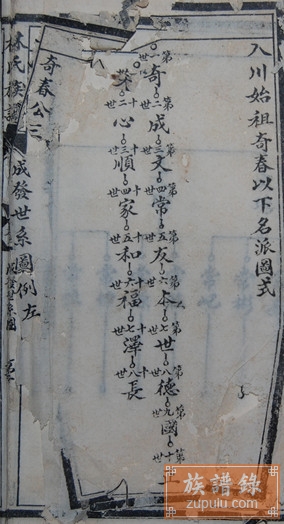 入川始祖奇春以下名派圖式
第一世奇第二世成第三世文第四世常第五世友第六世本第七世世第八世德第九世國第十世
十二世心十三世順十四世家十五世和十六世福十七世澤十八世長
奇春公三
成發世系圖例左
林氏族譜
成發世系圖
族譜錄
zupulu.com